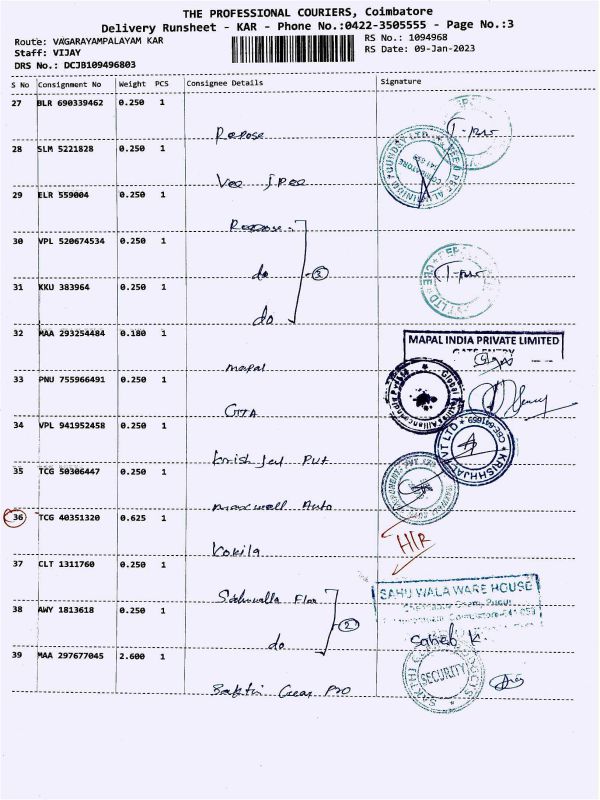 THE PROFESSIONAL COURIERS, Coimbatore
Delivery Runsheet - KAR - Phone No.:0422-3505555 - Page No.:3
Route: VAGARAYAMPALAYAM KAR
RS No.: 1094968
Staff: VIJAY
RS Date: 09-Jan-2023
DRS No.: DCJB109496803
S No Consignment No Weight PCS Consignee Details Signature
27 BLR 690339462 0.250 1
Repose
28 SLM 5221828 0.250 1
Vee
29 ELR 559004 0.250 1
Repose
30 VPL 520674534 0.250 1
do 3
31 KKU 383964 0.250 1
do
32 MAA 293254484 0.180 1
MAPAL INDIA PRIVATE LIMITED
GATE ENTRY
mapal
33 PNU 755966491 0.250 1
34 VPL 941952458 0.250 1
Krish Jal Pvt
35 TCG 50306447 0.250 1
maxwell Auto
36 TCG 40351320 0.625 1
Kokila
37 CLT 1311760 0.250 1
SAHU WALA WARE HOUSE
38 AWY 1813618 0.250 1
2
do
Saheb K
39 MAA 297677045 2.600 1
SECURITY
Sakthi Gear